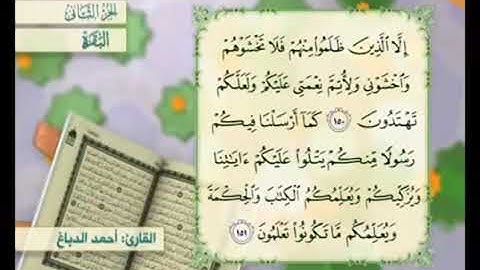 الجزء الثاني
البقرة
إِلَّا ٱلَّذِينَ ظَلَمُوا۟ مِنْهُمْ فَلَا تَخْشَوْهُمْ
وَٱخْشَوْنِى وَلِأُتِمَّ نِعْمَتِى عَلَيْكُمْ وَلَعَلَّكُمْ
تَهْتَدُونَ ١٥٠ كَمَآ أَرْسَلْنَا فِيكُمْ
رَسُولًا مِّنكُمْ يَتْلُوا۟ عَلَيْكُمْ ءَايَٰتِنَا
وَيُزَكِّيكُمْ وَيُعَلِّمُكُمُ ٱلْكِتَٰبَ وَٱلْحِكْمَةَ
وَيُعَلِّمُكُم مَّا تَكُونُوا۟ تَعْلَمُونَ ١٥١
القارئ: أحمد الدباغ